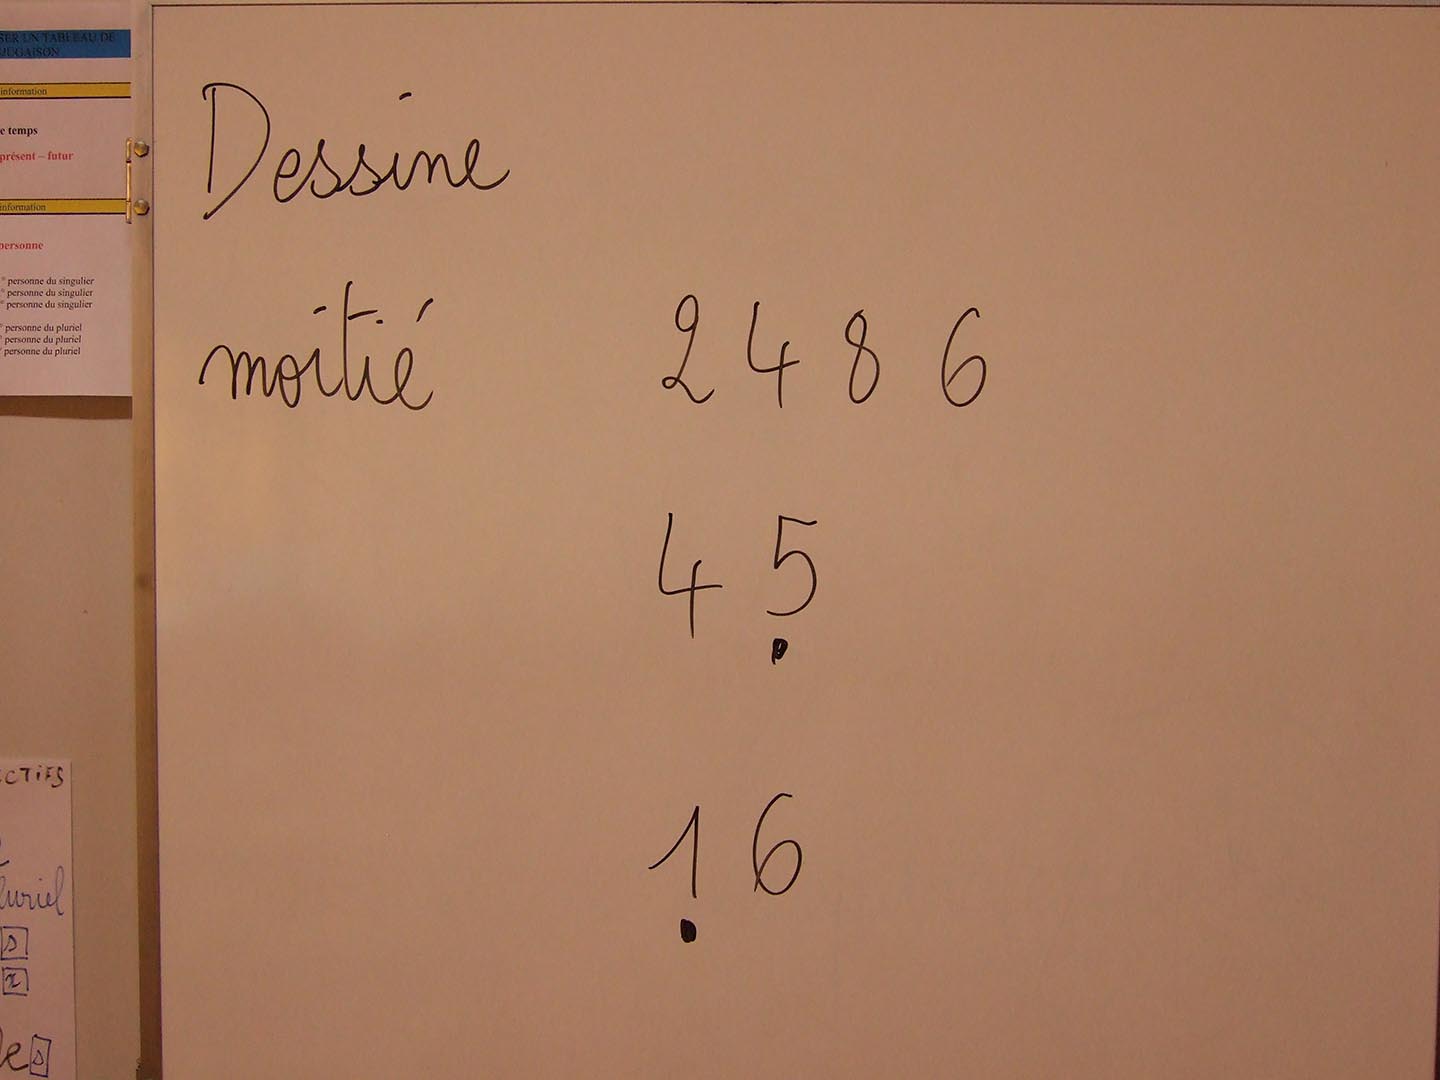 SER UN TABLEAU DE
JUGAISON
information
e temps
présent – futur
information
personne
° personne du singulier
° personne du singulier
° personne du singulier
° personne du pluriel
° personne du pluriel
° personne du pluriel
CTIFS
luriel
s
x
s
Dessine
moitié 2 4 8 6
4 5
1 6